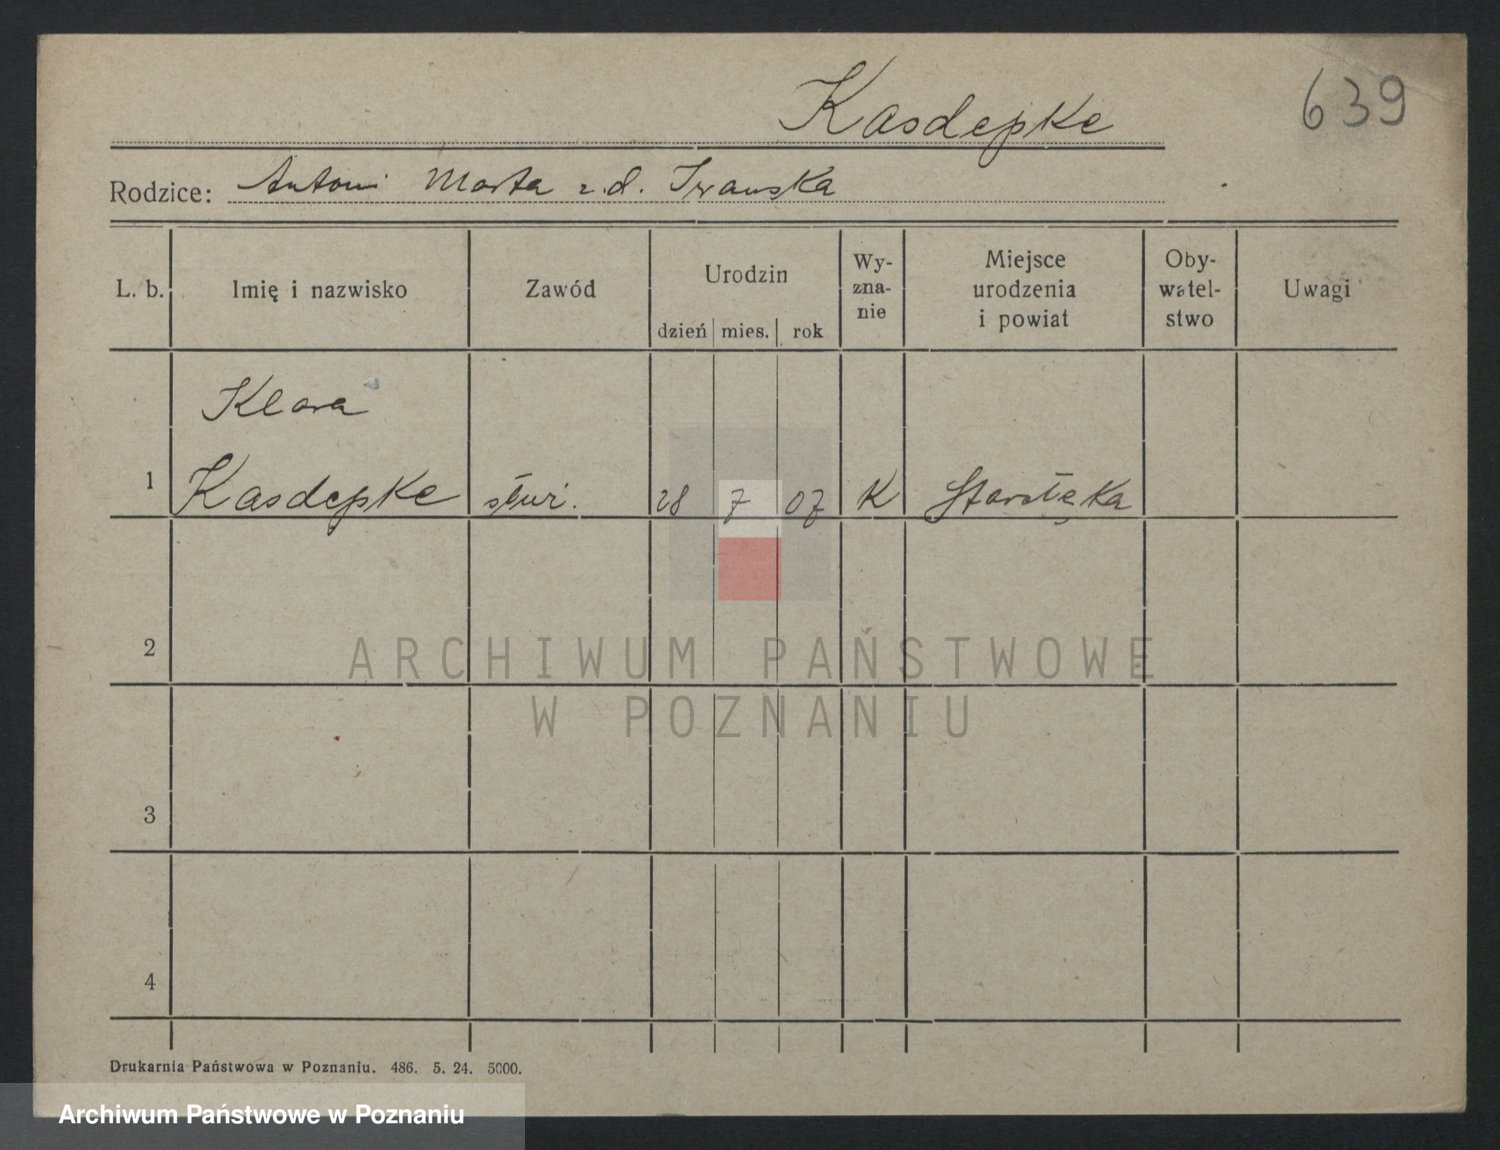 Kasdepke
639
Rodzice: Antoni Marta z.d.
L. b. Imię i nazwisko Zawód Urodzin dzień mies. rok Wy-zna-nie Miejsce urodzenia i powiat Oby-watel-stwo Uwagi
Klara
1 Kasdepke służ. 28 7 07 K Starołęka
2
ARCHIWUM PAŃSTWOWE
W POZNANIU
3
4
Drukarnia Państwowa w Poznaniu. 486. 5. 24. 5000.
Archiwum Państwowe w Poznaniu